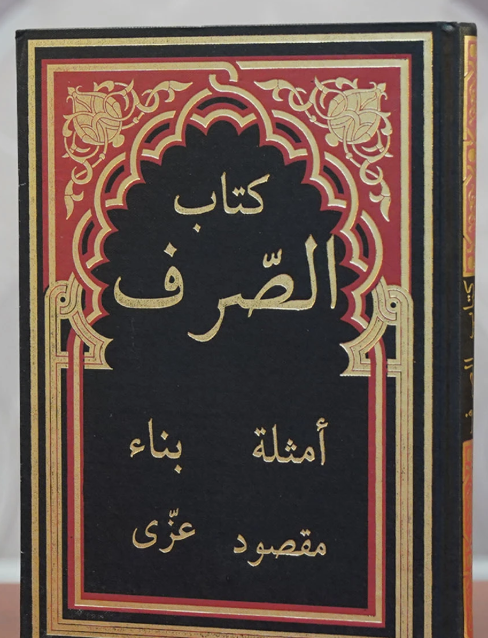 كتاب
الصّرف
أمثلة بناء
مقصود عزّى